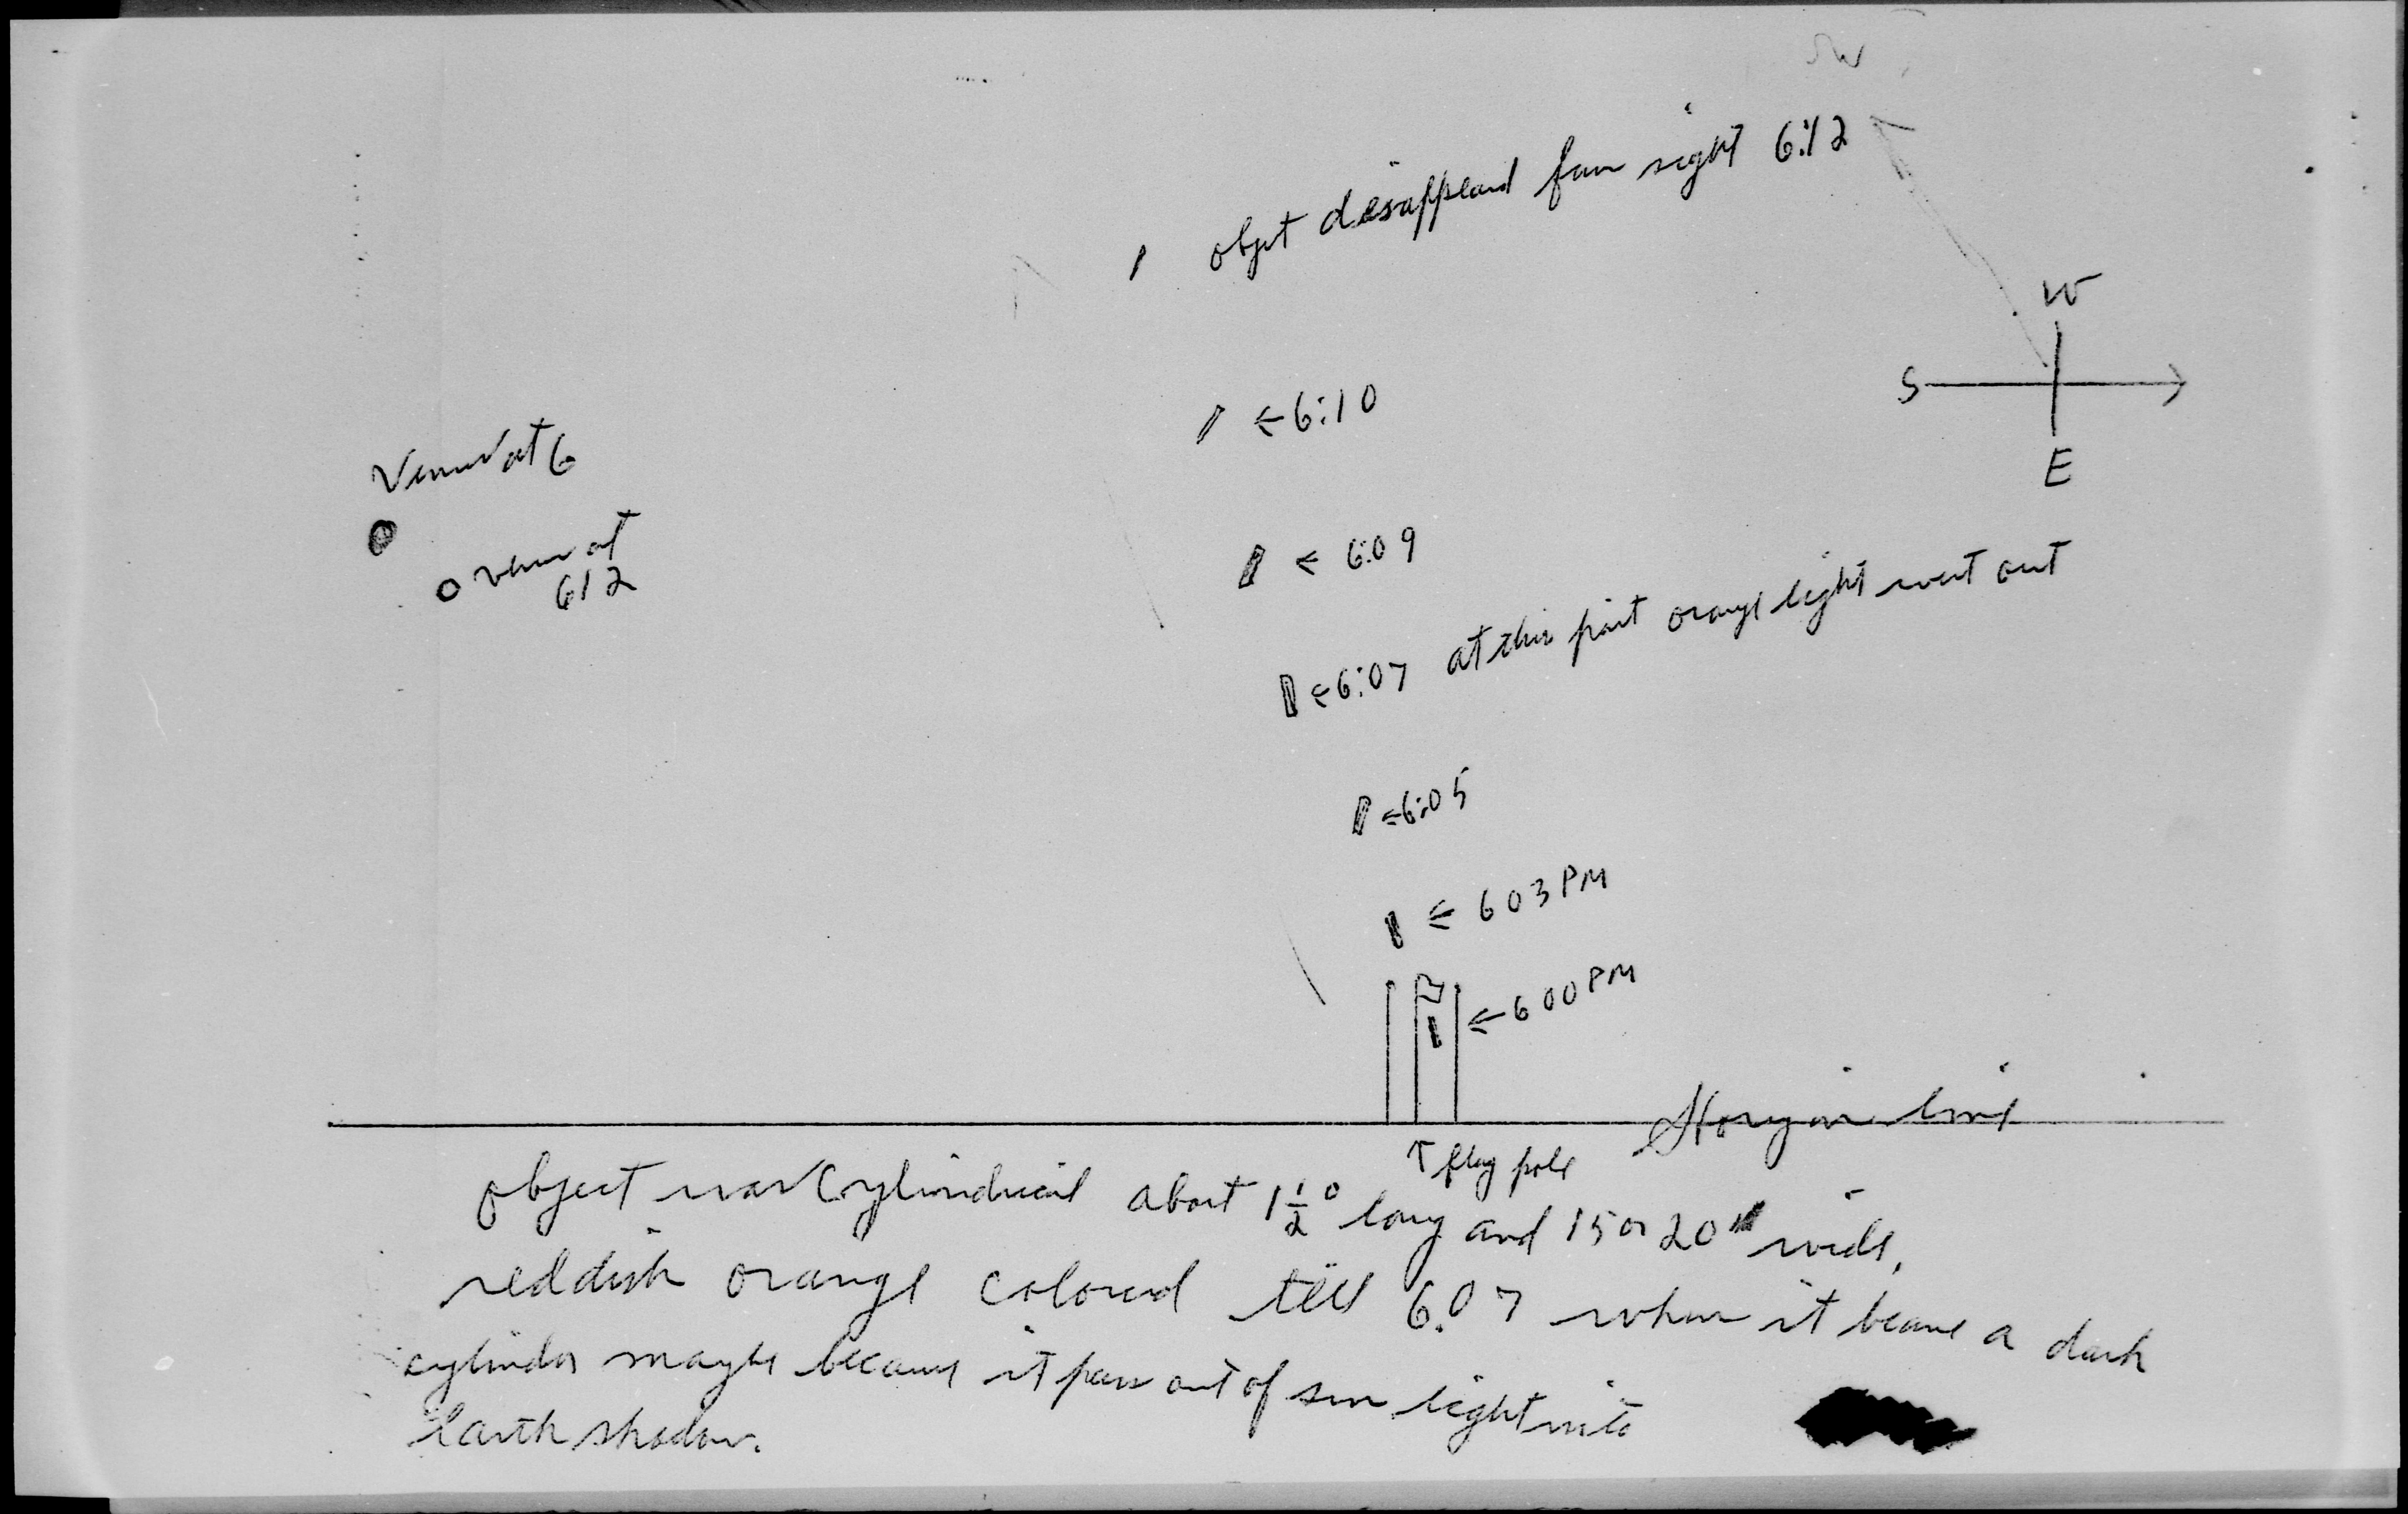 SW
objet disappeard from sight 6:12
W
←6:10
S
E
Venus at 6
← 6:09
O venus at
612
←6:07 at this point orange light went out
←6:05
← 603 PM
←600 PM
Horizon line
↑ flag pole
object was Cylindrical about 1½° long and 15 or 20" wide,
reddish orange colored till 6:07 when it became a dark
cylinder maybe because it pass out of sun light into
Earth shadow.